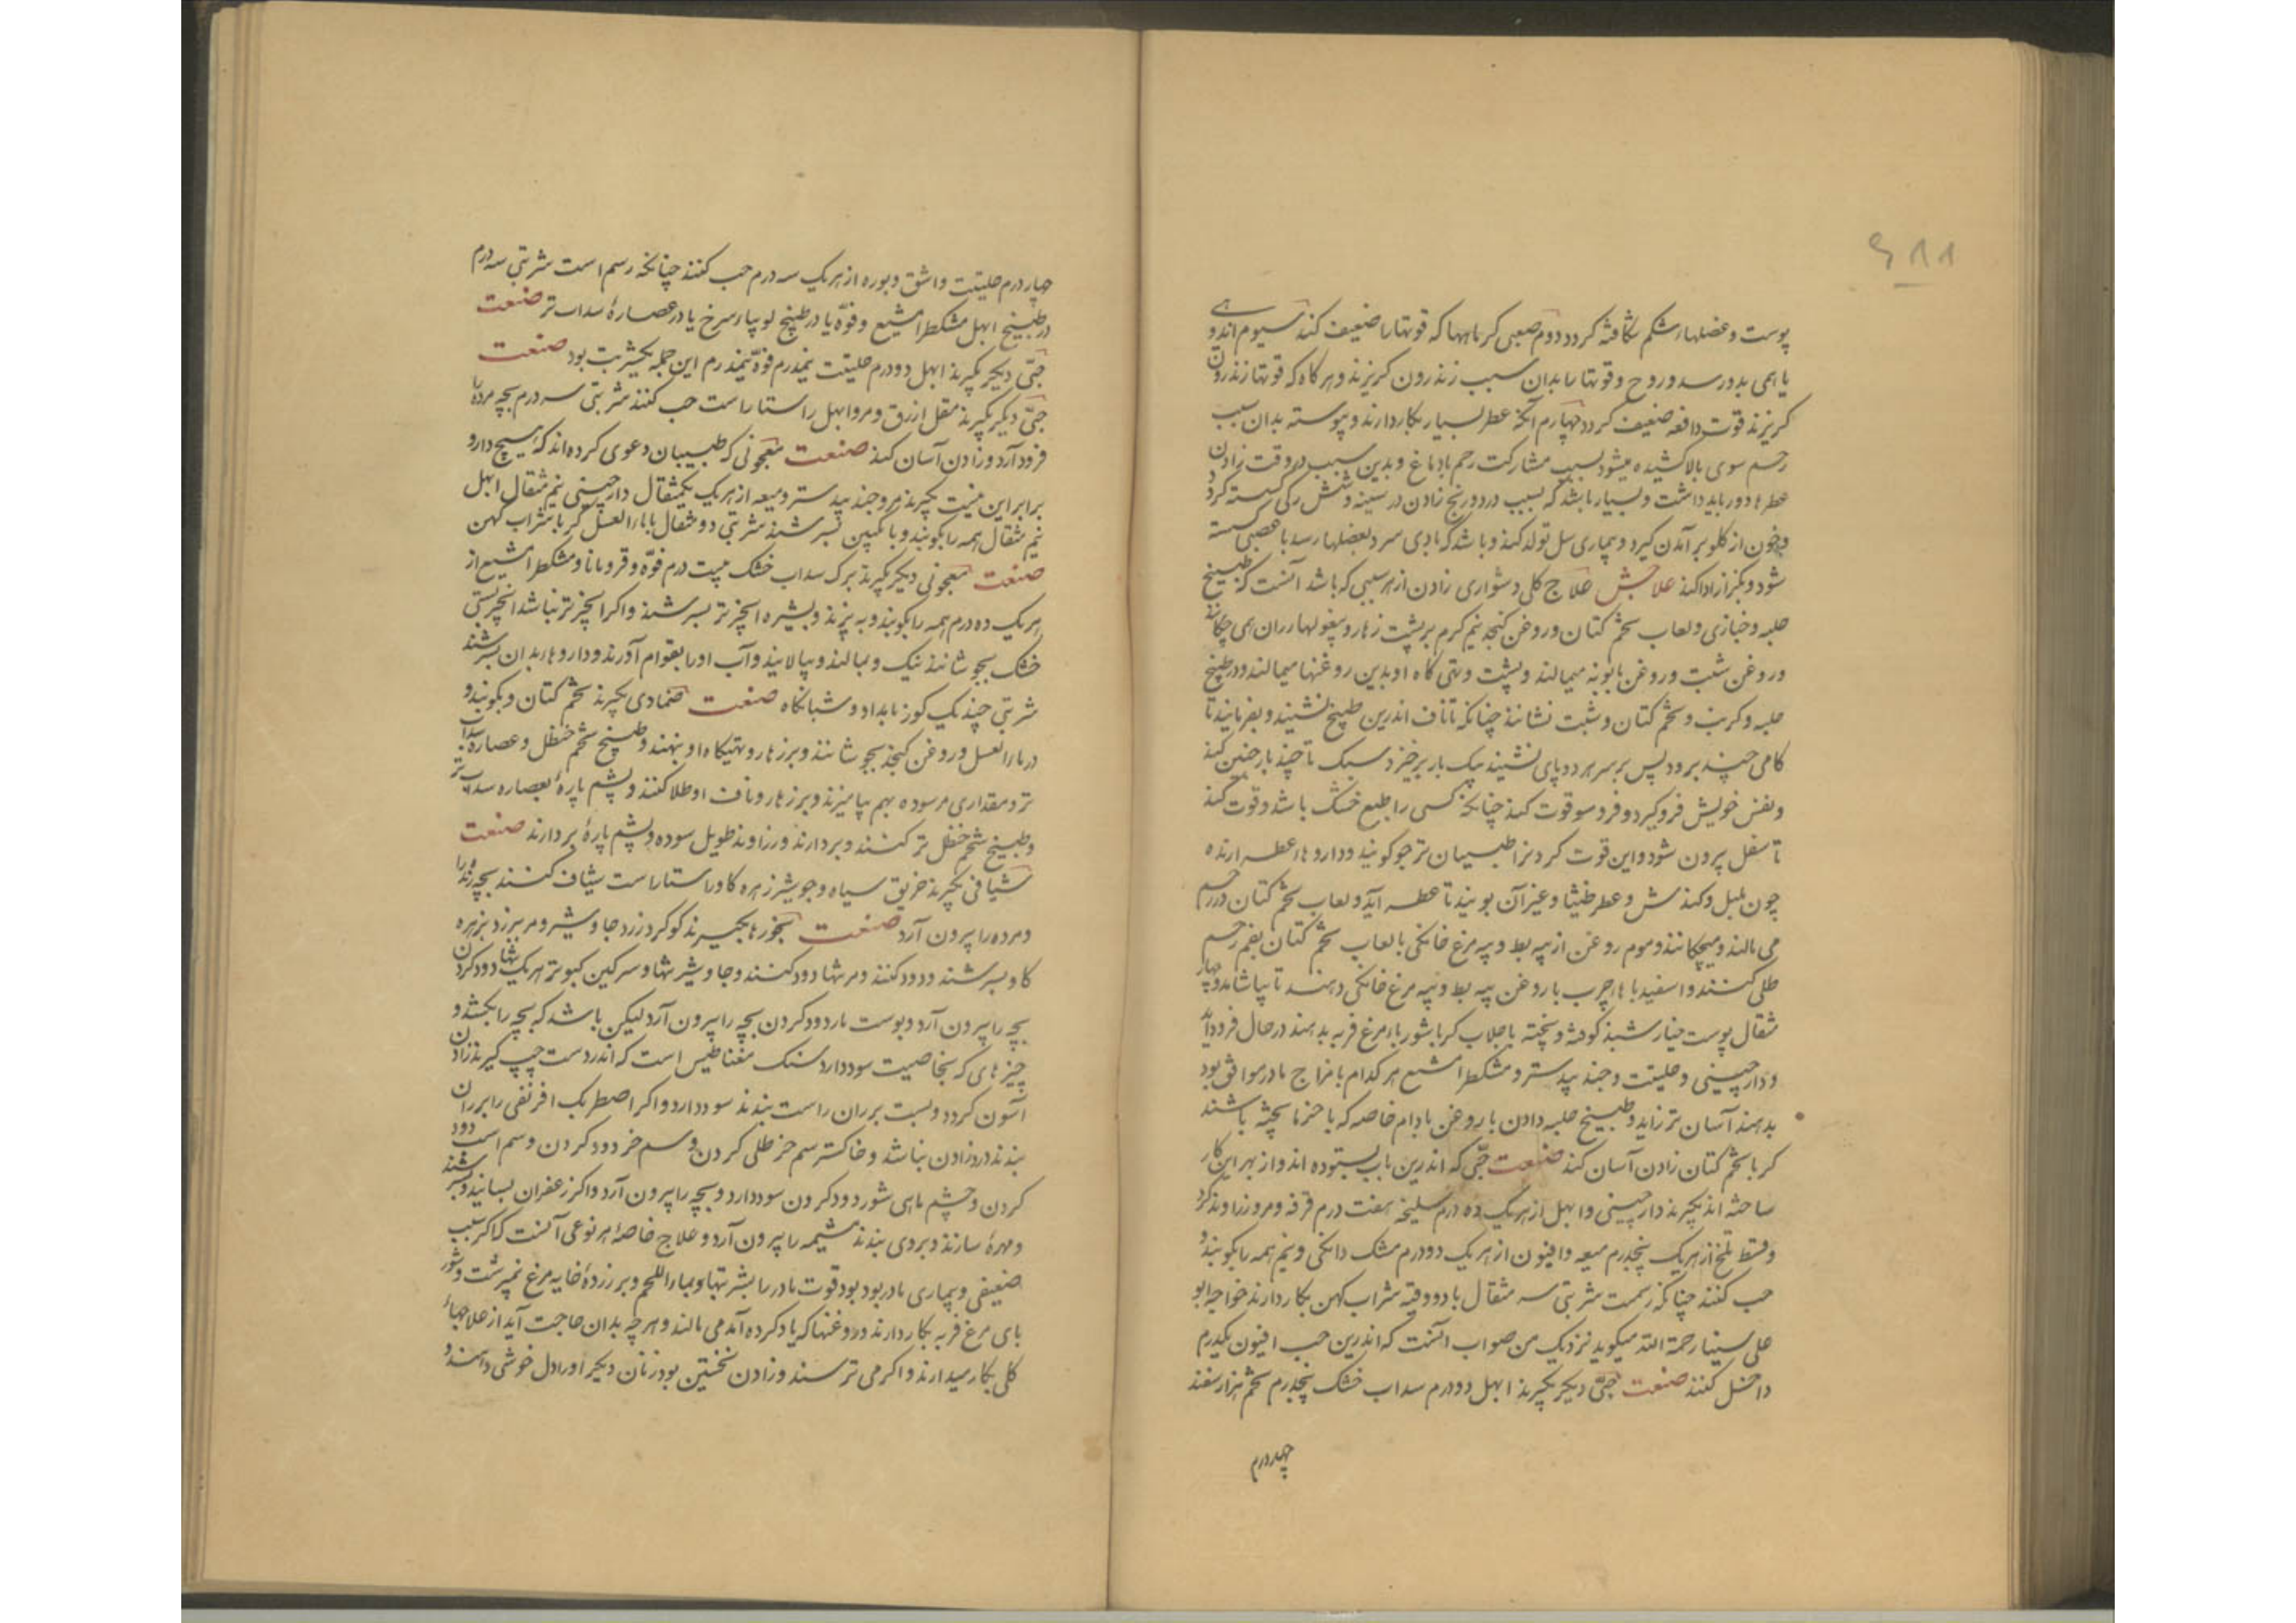 ۶۸۸
پوست و عضلهاء شکم شکافته کردد دوم صعبی کرماهها که قوتها را ضعیف کند سیوم اندوهی
یا همی بدو رسد و روح و قوتها را بدان سبب زندرون کریزند و هر کاه که قوتها زندرون
کریزند قوت دافعه ضعیف کردد چهارم آنکه عطر بسیار بکار دارند و پیوسته بدان سبب
رحم سوی بالا کشیده میشود بسبب مشارکت رحم با دماغ و بدین سبب در وقت زادن
عطرها دور باید داشت و بسیار باشد که بسبب درد و رنج زادن در سینه و شش رکی کسسته کردد
و خون از کلو بر آمدن کیرد و بیماری سل تولد کند و باشد که بادی سرد بعضلها رسد یا عصبی کسسته
شود و بکزاز ادا کند علاجش علاج کلی دشواری زادن از هر سببی که باشد آنست که طبیخ
حلبه و خبازی و لعاب تخم کتان و روغن کنجد نیم کرم بر پشت زهار و پیغولهاء ران همی چکانند
و روغن شبت و روغن بابونه میمالند و پشت و تهی کاه او بدین روغنها میمالند و در طبیخ
حلبه و کرنب و تخم کتان و شبت نشانند چنانکه تا ناف اندرین طبیخ نشیند و بفرمایند تا
کامی چند برود پس بر سر هر دو پای نشیند بیک بار برخیزد سبک تا چند بار چنین کند
و نفس خویش فرو کیرد و فرو سو قوت کند چنانکه کسی را طبع خشک باشد و قوت کند
تا ثفل بیرون شود و این قوت کردن را طبیبان تزجر کویند و داروهاء عطسه ارنده
چون پلپل و کندش و عطر طنیثا و غیر آن بویند تا عطسه آید و لعاب تخم کتان در رحم
می مالند و میچکانند و موم روغن از پیه بط و پیه مرغ خانکی با لعاب تخم کتان بفم رحم
طلی کنند و اسفیدباهاء چرب با روغن پیه بط و پیه مرغ خانکی دهند تا بیاشامد و چهار
مثقال پوست خیارشنبذ کوفته و پخته با جلاب کر با شورباء مرغ فربه بدهند در حال فرود آید
و دارچینی و حلیتت و جند بیدستر و مشکطرامشیع هر کدام با مزاج مادر موافق بود
بدهند آسان تر زاید و طبیخ حلبه دادن با روغن بادام خاصه که با خرما پخته باشند
کر با تخم کتان زادن آسان کند صنعت حبّی که اندرین باب بستوده اند و از بهر این کار
ساخته اند بکیرند دارچینی و ابهل از هر یک ده درم سلیخه هفت درم قرفه و مر و زراوند کرد
و قسط تلخ از هر یک پنجدرم میعه و افیون از هر یک دو درم مشک دانکی و نیم همه را بکوبند و
حب کنند چنانکه رسمست شربتی سه مثقال با دو وقیه شراب کهن بکار دارند خواجه ابو
علی سینا رحمة الله میکوید نزدیک من صواب آنست که اندرین حب افیون یکدرم
داخل کنند صنعت حبّی دیکر بکیرند ابهل دو درم سداب خشک پنجدرم تخم هزارسفند
چهار درم
چهار درم حلیتت و اشق و بوره از هر یک سه درم حب کنند چنانکه رسم است شربتی سه درم
در طبیخ ابهل مشکطرامشیع و فوّه یا در طبیخ لوبیاء سرخ یا در عصارهٔ سداب تر صنعت
حبّی دیکر بکیرند ابهل دو درم حلیتت نیمدرم فوّه نیمدرم این جمله یکشربت بود صنعت
حبّی دیکر بکیرند مقل ازرق و مر و ابهل راستا راست حب کنند شربتی سه درم بچه مرده را
فرود آرد و زادن آسان کند صنعت معجونی که طبیبان دعوی کرده اند که هیچ دارو
برابر این نیست بکیرند مر و جند بیدستر و میعه از هر یک یکمثقال دارچینی نیم مثقال ابهل
نیم مثقال همه را بکوبند و بانکبین بسرشند شربتی دو مثقال با ماءالعسل کر با شراب کهن
صنعت معجونی دیکر بکیرند برک سداب خشک بیست درم فوّه و قرومانا و مشکطرامشیع از
هر یک ده درم همه را بکوبند و به بیزند و بشیره انجیر تر بسرشند و اکر انجیر تر نباشد انجیر بستی
خشک بجوشانند نیک و بمالند و بپالایند و آب او را بقوام آورند و داروها بدان بسرشند
شربتی چند یک کوز بامداد و شبانکاه صنعت ضمادی بکیرند تخم کتان و بکوبند و
در ماءالعسل و روغن کنجد بجوشانند و بر زهار و تهیکاه او بنهند و طبیخ شحم حنظل و عصاره سداب
تر و مقداری مر سوده بهم بیامیزند و بر زهار و ناف او طلا کنند و پشم پارهٔ بعصاره سداب تر
و طبیخ شحم حنظل تر کنند و بردارند و زراوند طویل سوده و پشم پارهٔ بردارند صنعت
شیافی بکیرند خربق سیاه و جوشیر زهره کاو راستا راست شیاف کنند بچه زنده را
و مرده را بیرون آرد صنعت بخورها بکیرند کوکرد زرد جاوشیر و مر بیرزد بزهره
کاو بسرشند و دود کنند و مر تنها دود کنند و جاوشیر تنها و سرکین کبوتر هر یک تنها دود کردن
بچه را بیرون آرد و پوست مار دود کردن بچه را بیرون آرد لیکن باشد که بچه را بکشد و
چیزهای که بخاصیت سود دارد سنک مغناطیس است که اندر دست چپ کیرند زادن
آسون کردد و بسبت بر ران راست بندند سود دارد و اکر اصطرک افرنقی را بر ران
بندند درد زادن نباشد و خاکستر سم خر طلی کردن و سم خر دود کردن و سم اسب دود
کردن و چشم ماهی شور دود کردن سود دارد و بچه را بیرون آرد و اکر زعفران بسایند و بسرشند
و مهرهٔ سازند و بروی بندند مشیمه را بیرون آرد و علاج خاصهٔ هر نوعی آنست که اکر سبب
ضعیفی و بیماری مادر بود بود قوت مادر را بشربتها و بماءاللحم و بر زردهٔ خایه مرغ نمیرشت و شور
بای مرغ فربه بکار دارند و روغنها که یاد کرده آمد می مالند و هر چه بدان حاجت آید از علاجهاء
کلی بکار میدارند و اکر می ترسند و زادن نخستین بود زنان دیکر او را دل خوشی دهند و